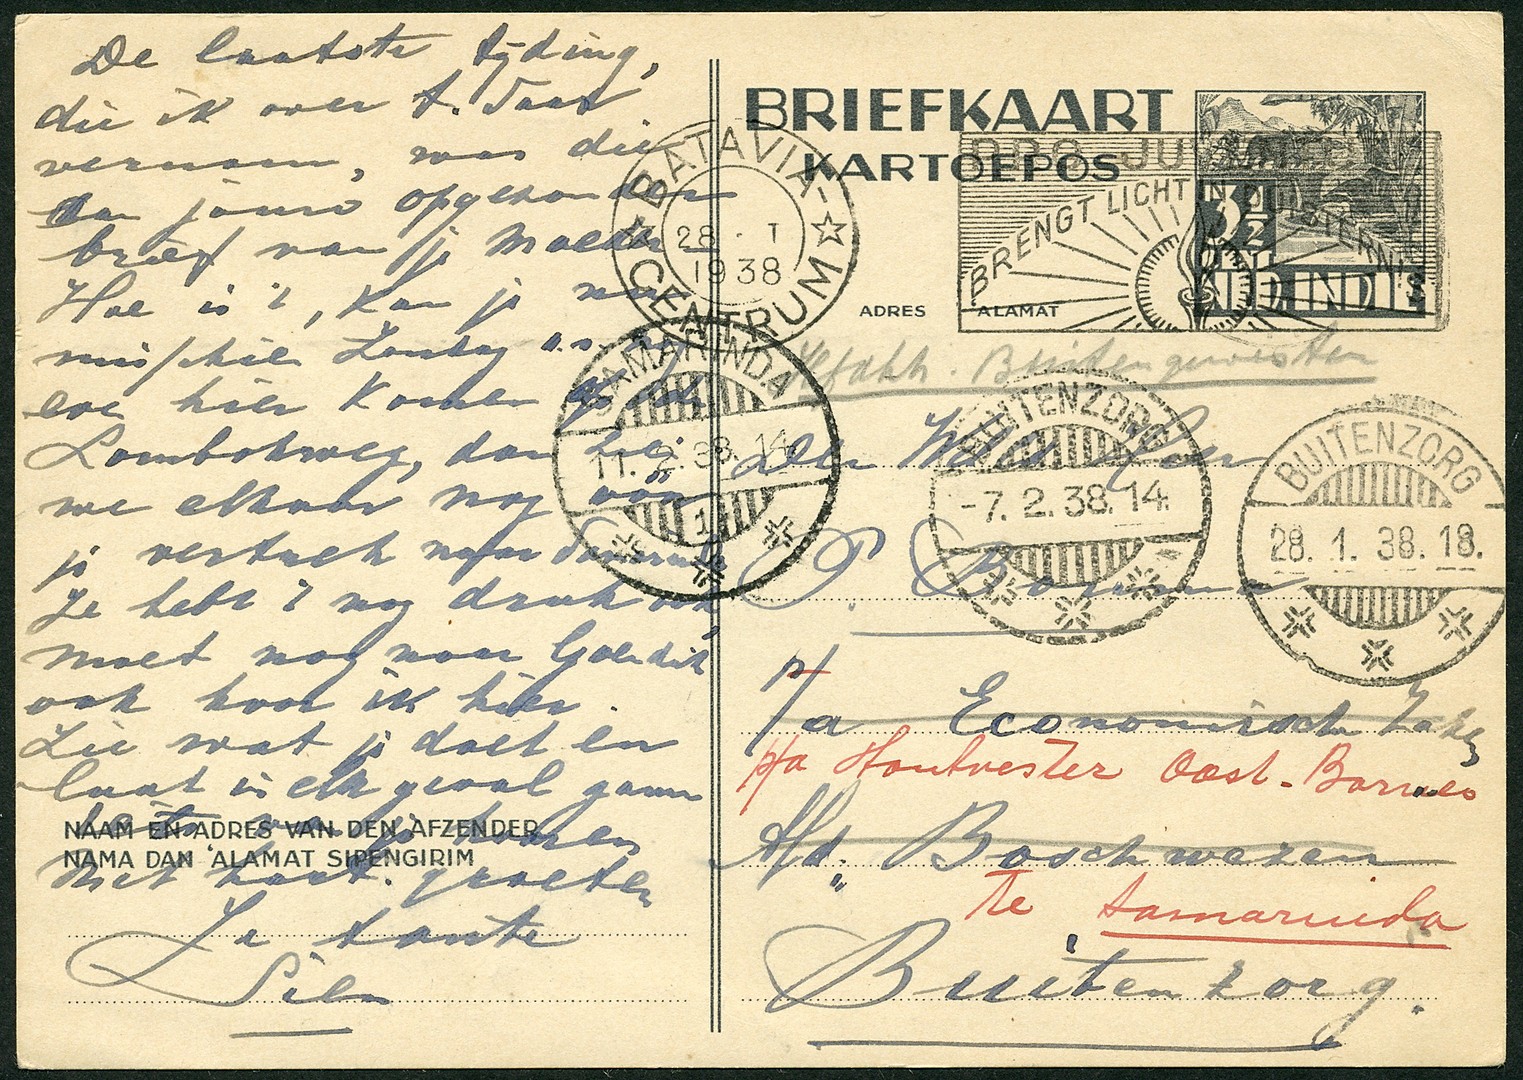 De laatste tyding,
die ik over t. Daar
vernam, was die
aan jouw opgezonden
brief van je Moeder
Hoe is 't, kan je nu
misschien Zondag
eve hier komen
Lombokweg, dan
we elkaar nog voor
je vertrek naar Samarinda
Je hebt 't nog druk ook
moet nog naar
ook hoor ik hier.
Zie wat je doet en
laat in elk geval gauw
iets van je hooren
Met hart. groeten
Je tante
Sien
NAAM EN ADRES VAN DEN AFZENDER
NAMA DAN 'ALAMAT SIPENGIRIM
BRIEFKAART
KARTOEPOS
BATAVIA-
CENTRUM
28 · I
1938
JULIANA
BRENGT LICHT IN DUISTERNIS
3½
NED. INDIË
ADRES
ALAMAT
Buitengewesten
SAMARINDA
11. 2. 38. 14
1
BUITENZORG
-7. 2. 38. 14.
BUITENZORG
28. 1. 38. 18.
Den Heer
P.
p/a Economische Zaken
p/a Houtvester Oost-Borneo
Afd. Boschwezen
te Samarinda
Buitenzorg.